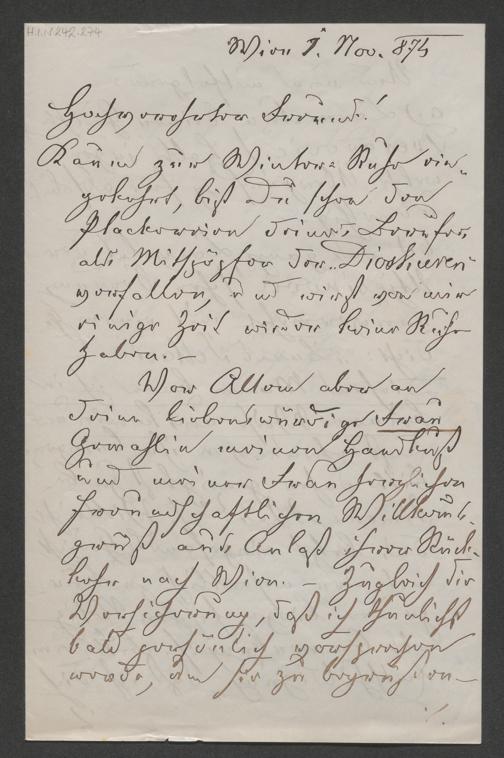 H.I.N. 242.274
Wien 1. Nov. 875
Hochverehrter Freund!
Kaum zur Winter-Ruhe ein-
gekehrt, bist Du schon den
Plackereien Deines Berufes
als Mitschöpfer der „Dioskuren"
verfallen, und wirst von mir
einige Zeit wieder keine Ruhe
haben. —
Vor Allem aber an
Deine liebenswürdige Frau
Gemahlin meinen Handkuß
und meiner Frau herzlichen
freundschaftlichen Willkomms-
gruß aus Anlaß ihrer Rück-
kehr nach Wien. — Zugleich die
Versicherung, daß ich thunlichst
bald persönlich vorsprechen
werde, um sie zu begrüssen —
./.